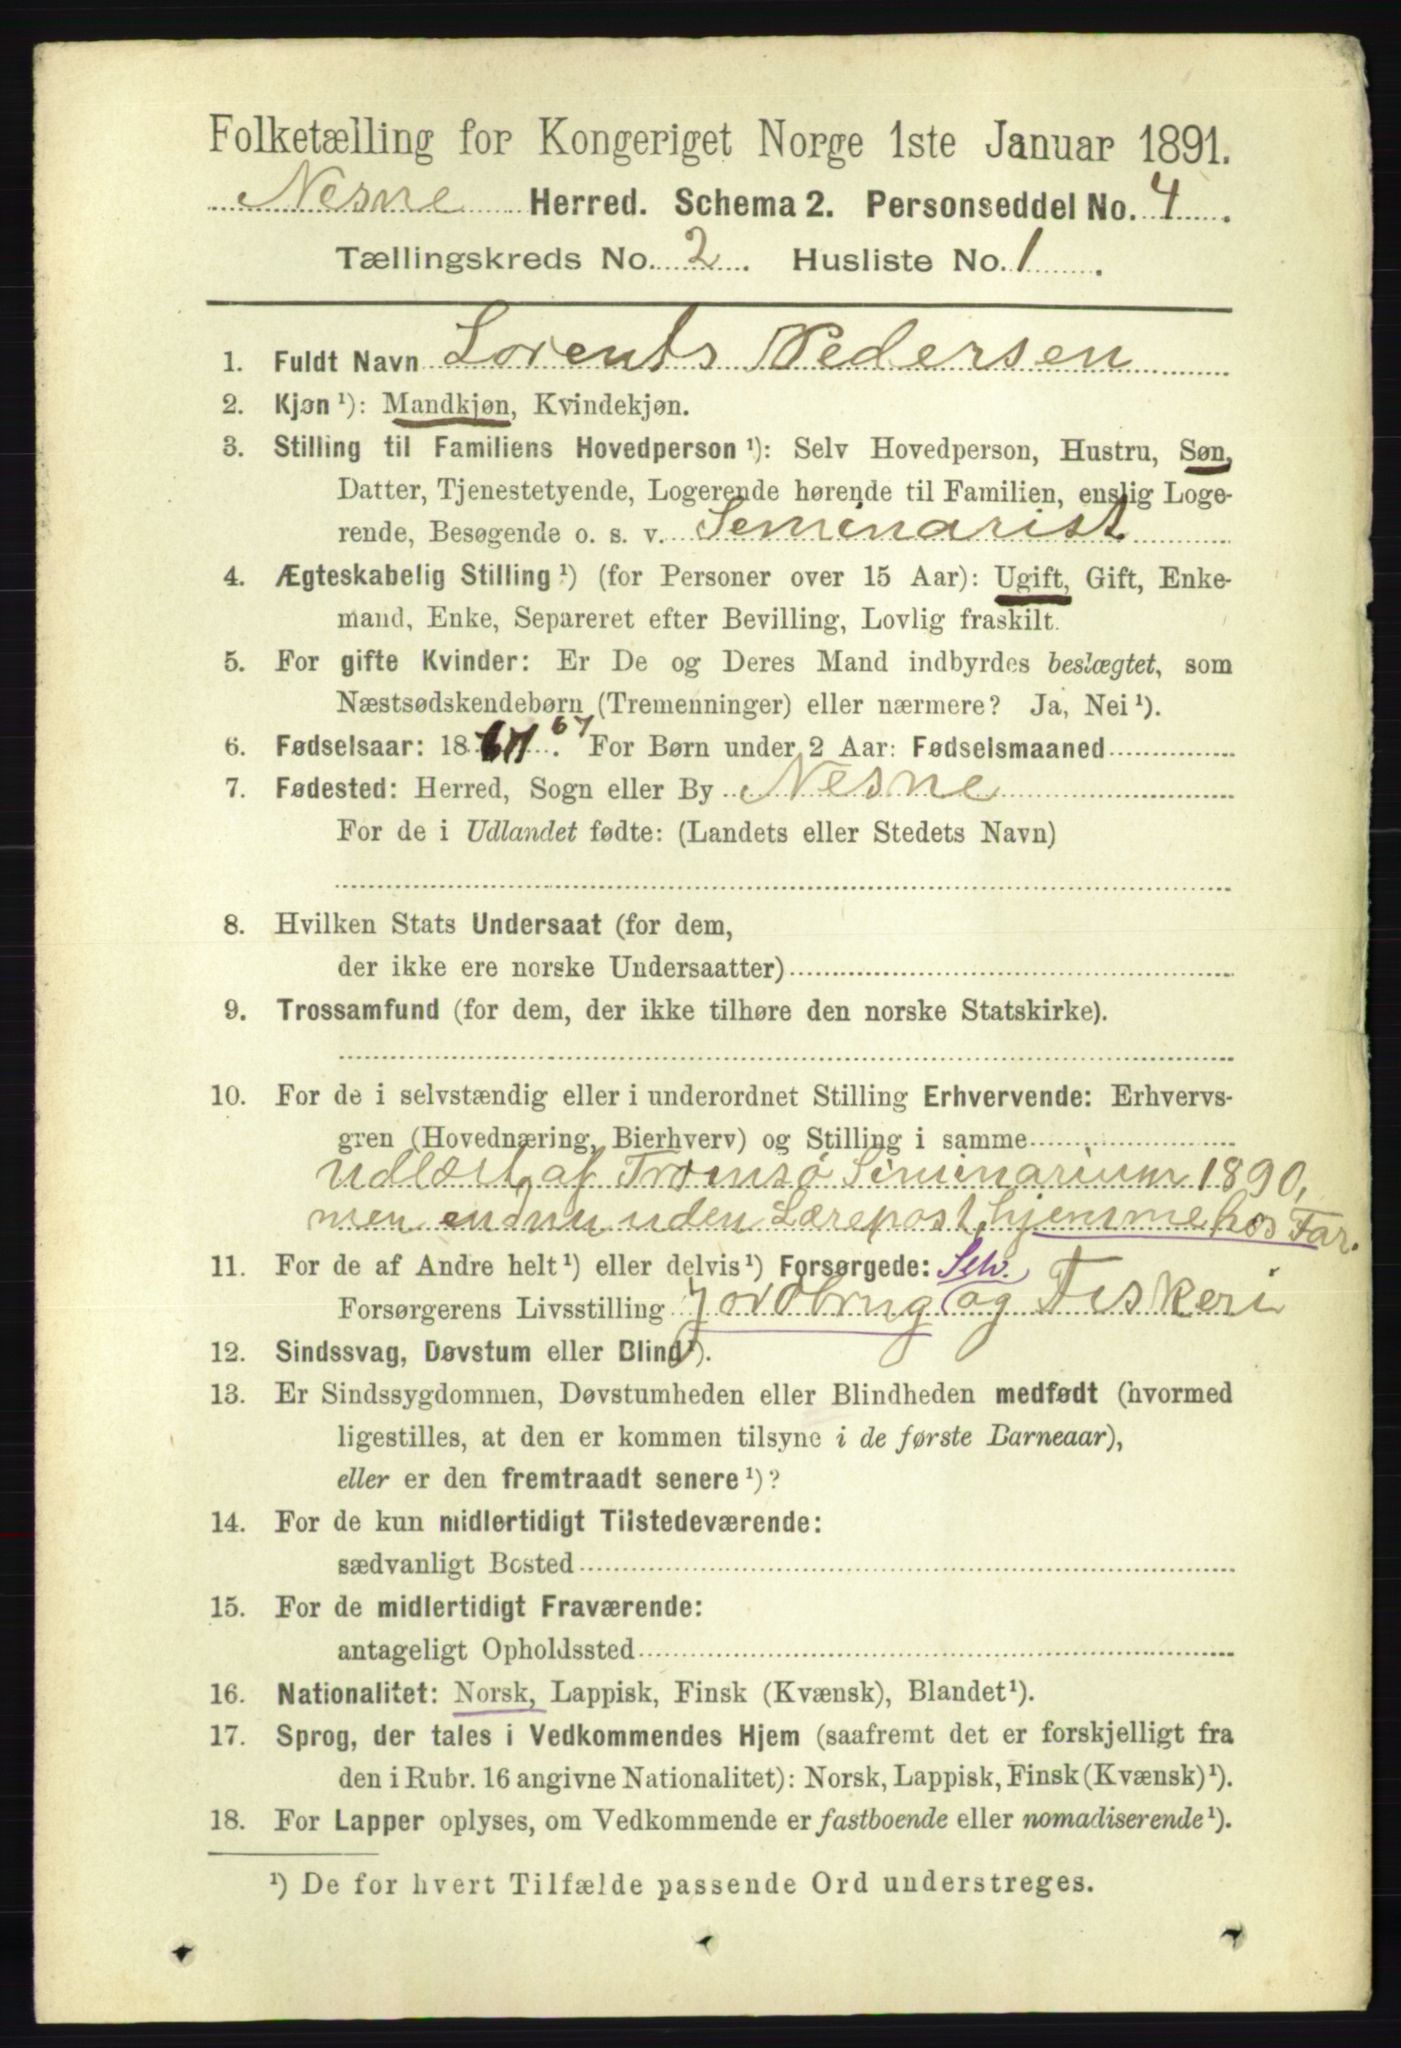 Folketælling for Kongeriget Norge 1ste Januar 1891.
Nesne Herred. Schema 2. Personseddel No. 4.
Tællingskreds No. 2. Husliste No. 1.
1. Fuldt Navn Lorents Pedersen
2. Kjøn ¹): Mandkjøn, Kvindekjøn.
3. Stilling til Familiens Hovedperson ¹): Selv Hovedperson, Hustru, Søn,
Datter, Tjenestetyende, Logerende hørende til Familien, enslig Loge-
rende, Besøgende o. s. v. Seminarist
4. Ægteskabelig Stilling ¹) (for Personer over 15 Aar): Ugift, Gift, Enke-
mand, Enke, Separeret efter Bevilling, Lovlig fraskilt.
5. For gifte Kvinder: Er De og Deres Mand indbyrdes beslægtet, som
Næstsødskendebørn (Tremenninger) eller nærmere? Ja, Nei ¹).
6. Fødselsaar: 1867. 67 For Børn under 2 Aar: Fødselsmaaned
7. Fødested: Herred, Sogn eller By Nesne
For de i Udlandet fødte: (Landets eller Stedets Navn)
8. Hvilken Stats Undersaat (for dem,
der ikke ere norske Undersaatter)
9. Trossamfund (for dem, der ikke tilhøre den norske Statskirke).
10. For de i selvstændig eller i underordnet Stilling Erhvervende: Erhvervs-
gren (Hovednæring, Bierhverv) og Stilling i samme
udlært af Tromsø Seminarium 1890,
men endnu uden Lærepost, hjemme hos Far.
11. For de af Andre helt ¹) eller delvis ¹) Forsørgede: Selv.
Forsørgerens Livsstilling Jordbrug og Fiskeri
12. Sindssvag, Døvstum eller Blind ¹).
13. Er Sindssygdommen, Døvstumheden eller Blindheden medfødt (hvormed
ligestilles, at den er kommen tilsyne i de første Barneaar),
eller er den fremtraadt senere ¹)?
14. For de kun midlertidigt Tilstedeværende:
sædvanligt Bosted
15. For de midlertidigt Fraværende:
antageligt Opholdssted
16. Nationalitet: Norsk, Lappisk, Finsk (Kvænsk), Blandet ¹).
17. Sprog, der tales i Vedkommendes Hjem (saafremt det er forskjelligt fra
den i Rubr. 16 angivne Nationalitet): Norsk, Lappisk, Finsk (Kvænsk) ¹).
18. For Lapper oplyses, om Vedkommende er fastboende eller nomadiserende ¹).
¹) De for hvert Tilfælde passende Ord understreges.